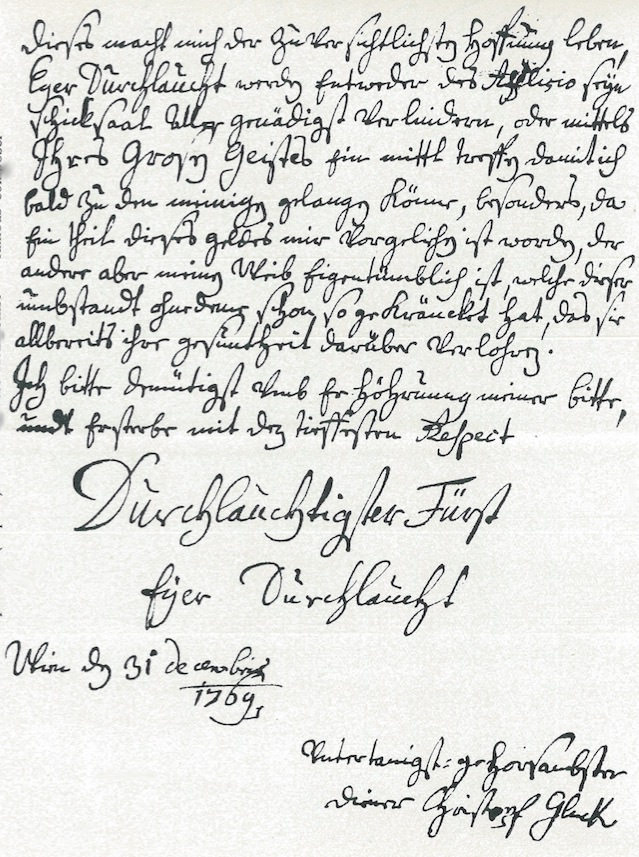 dieses macht mich der zuversichtlichsten Hoffnung leben,
Eyer Durchlaucht werden entweder des Afflisio seyn
schicksaal aller genädigst verlindern, oder mittels
Ihres Grosen Geistes ein mittl treffen damit ich
bald zu den meinigen gelangen könne, besonders, da
ein theil dieses geldes mir vorgelihen ist worden, der
andere aber meinen Weib Eigentümblich ist, welche dieser
umbstandt ohnedeme schon so gekräncket hat, das sie
allbereits ihre gesuntheit darüber verlohren.
Ich bitte demütigst umb Erhöhrung meiner bitte,
undt Ersterbe mit den tieffesten Respect
Durchlauchtigster Fürst
Eyer Durchlaucht
Wien den 31 decembris
1769
Untertanigst=gehorsambster
diener Christopf Gluck